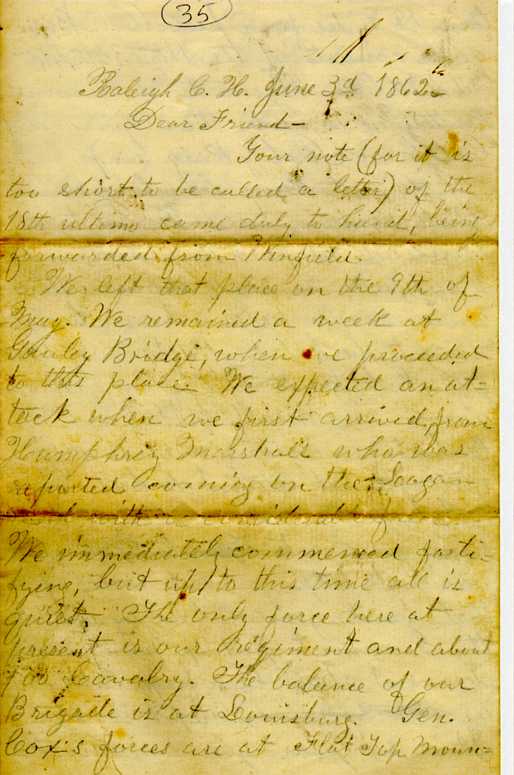 35
Raleigh C. H. June 3d 1862
Dear Friend—
Your note (for it is
too short to be called a letter) of the
18th ultimo came duly to hand, being
forwarded from Winfield.
We left that place on the 9th of
May. We remained a week at
Gauley Bridge, when we proceeded
to this place. We expected an at=
tack when we first arrived from
Humphrey Marshall who was
reported coming on the Logan
road with a considerable force
We immediately commenced forti-
fying, but up to this time all is
quiet. The only force here at
present is our regiment and about
Cavalry. The balance of our
Brigade is at Louisburg. Gen.
Cox's forces are at Flat Top Moun=